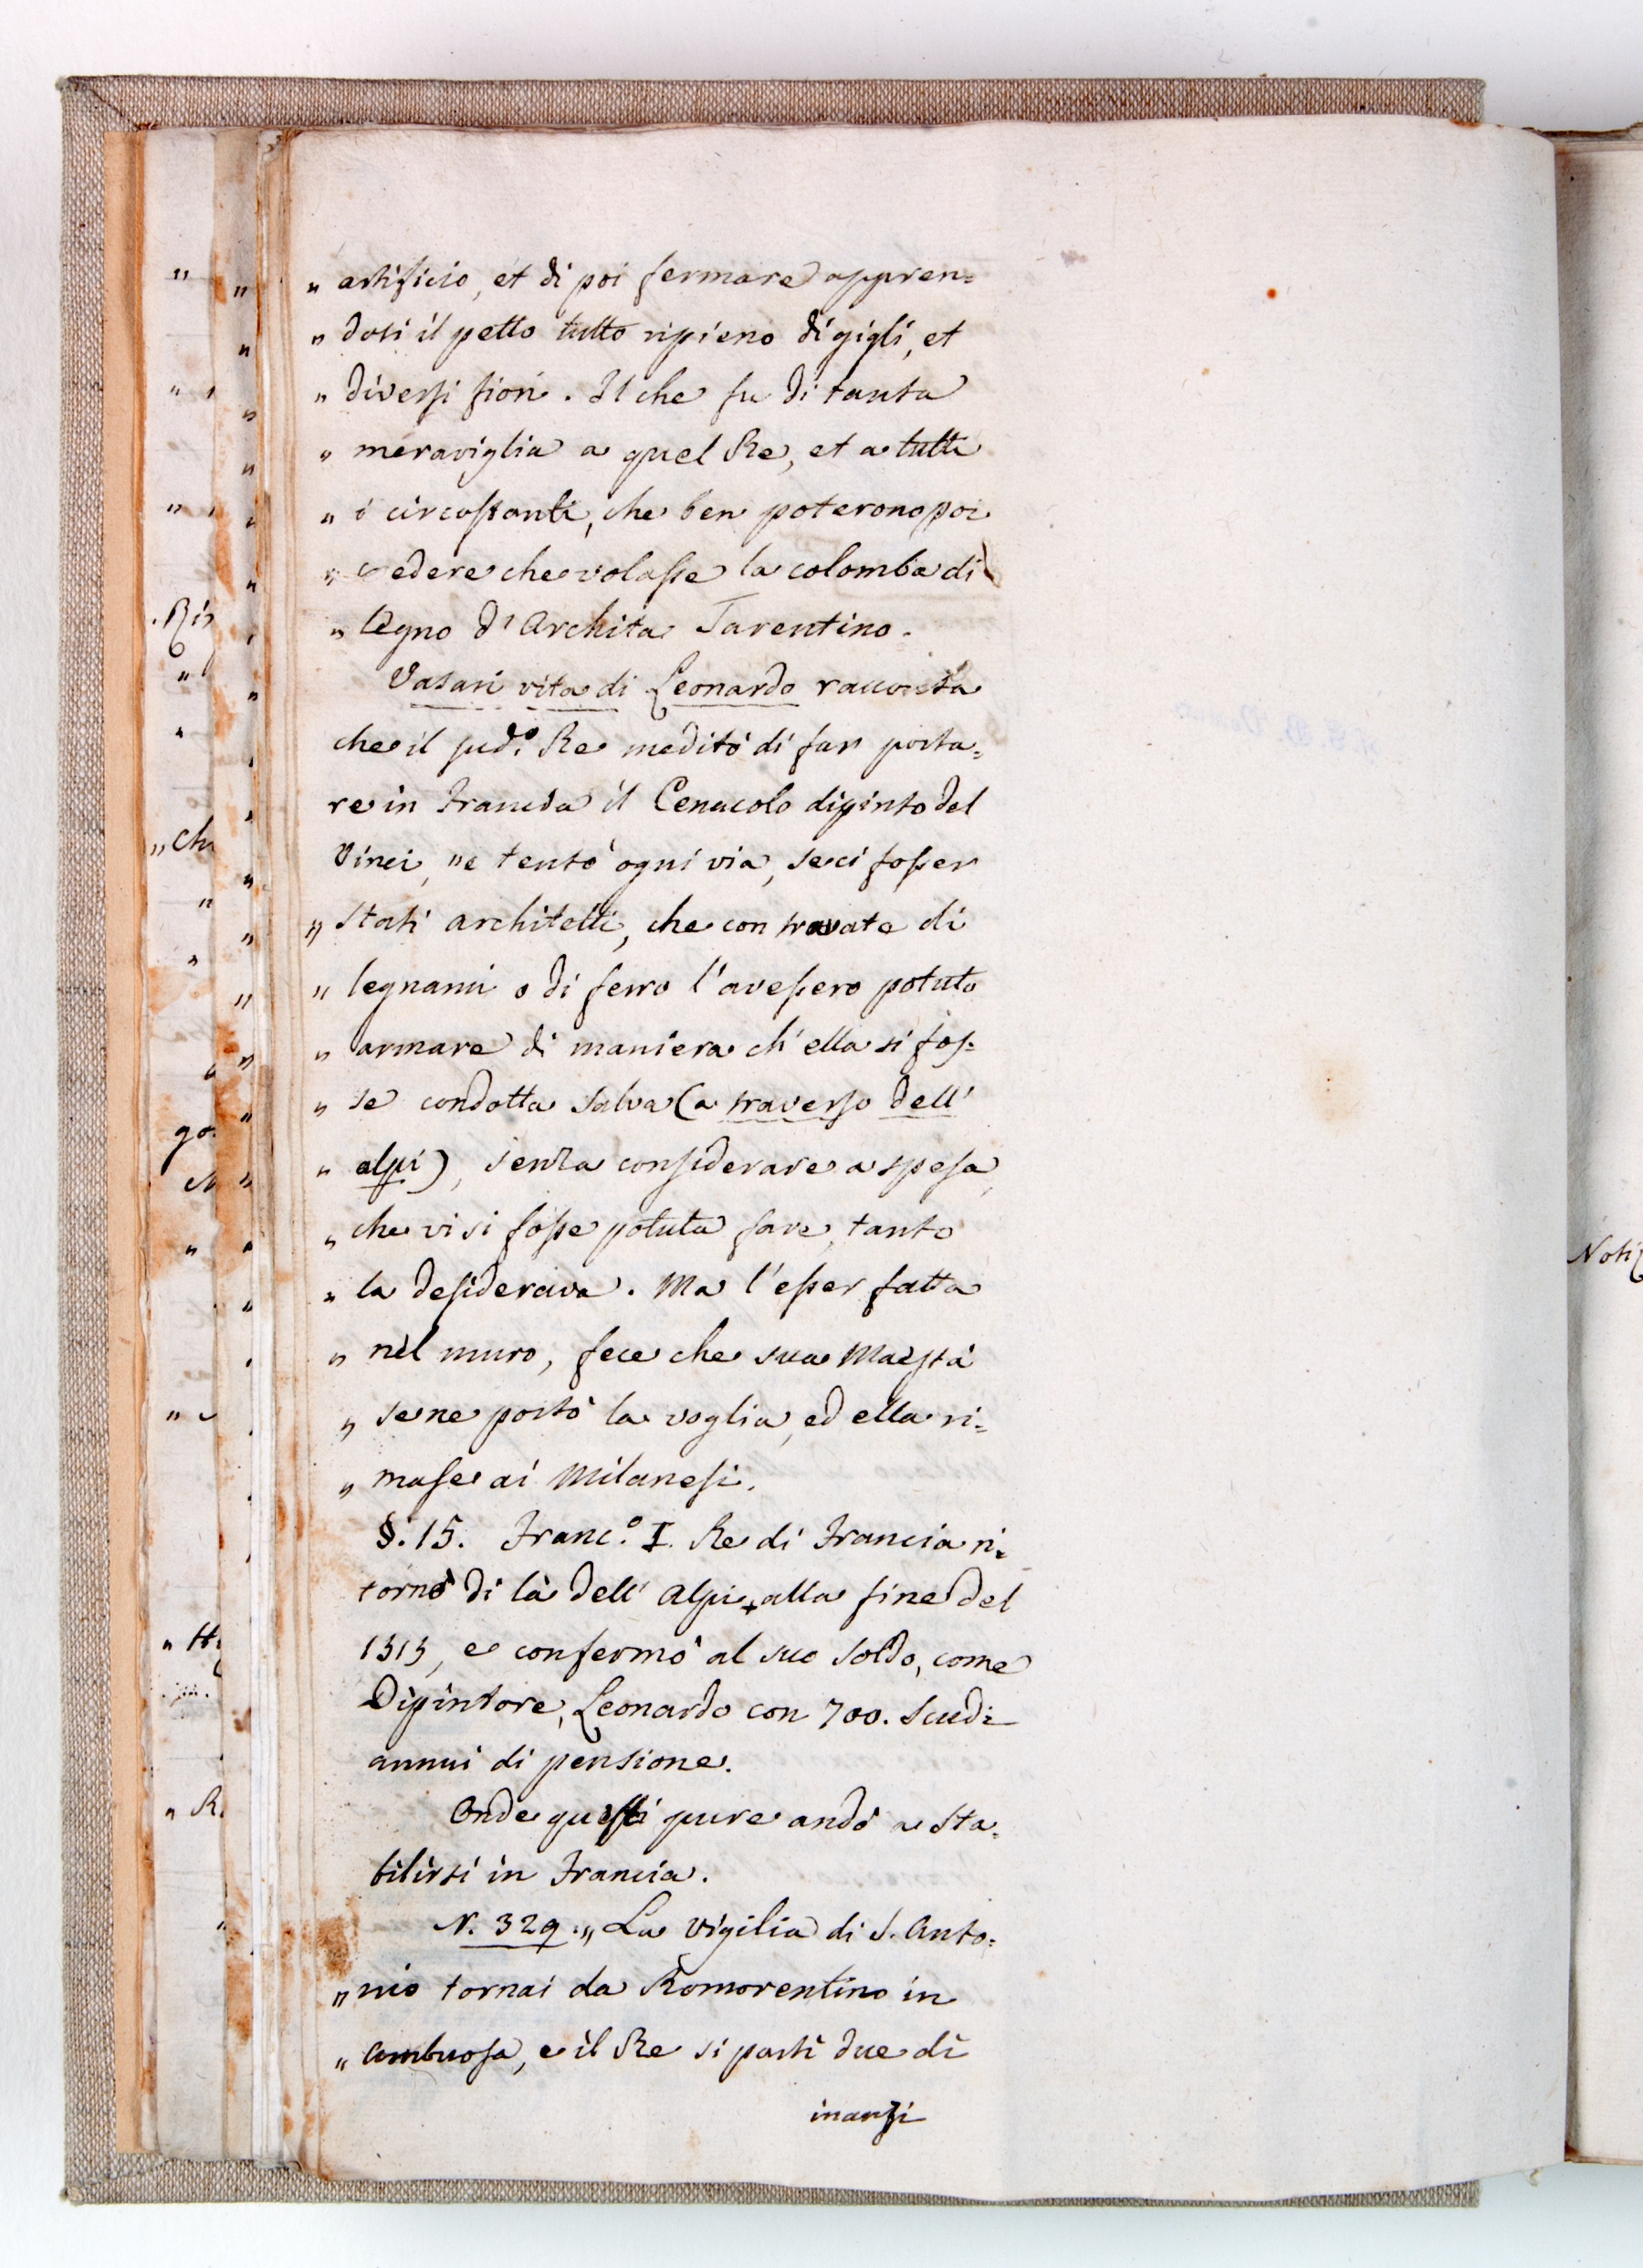 „ artificio, et di poi fermare appren=
„ dosi il petto tutto ripieno di gigli, et
„ diversi fiori. Il che fu di tanta
„ meraviglia a quel Re, et a tutti
„ i circostanti, che ben poterono poi
„ credere che volasse la colomba di
„ legno d'Archita Tarentino.
Vasari vita di Leonardo racconta
che il sud.º Re meditò di far porta=
re in Francia il Cenacolo dipinto del
Vinci, „e tentò ogni via, se ci fosser
„ stati architetti, che con travate di
„ legnami o di ferro l'avessero potuto
„ armare di maniera ch'ella si fos=
„ se condotta salva (a traverso dell'
„ alpi), senza considerare a spesa,
„ che vi si fosse potuta fare, tanto
„ la desiderava. Ma l'esser fatta
„ nel muro, fece che sua Maestà
„ se ne portò la voglia, ed ella ri=
„ mase ai Milanesi.
§. 15. Franc.º I. Re di Francia ri=
tornò di là dell'Alpi + alla fine del
1515, e confermò al suo soldo, come
Dipintore, Leonardo con 700. Scudi
annui di pensione.
Onde questi pure andò a sta=
bilirsi in Francia.
N. 329. „ La vigilia di S. Anto=
„ nio tornai da Romorentino in
„ Ambuosa, e il Re si partì due dì
inanzi